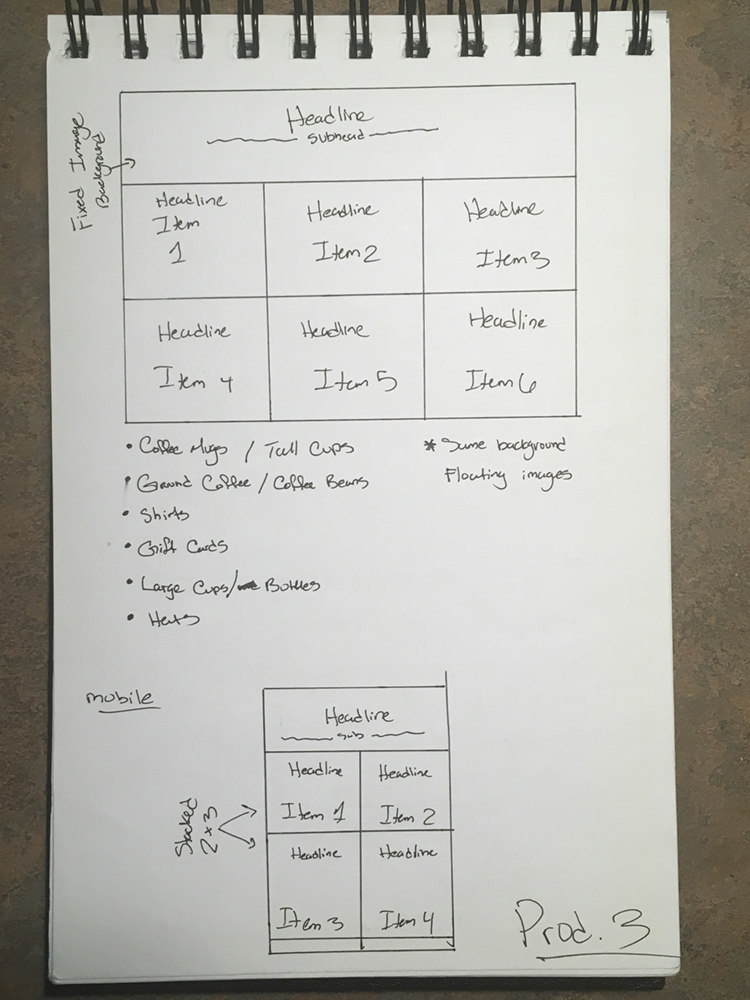 Fixed Image
Background
Headline
subhead
Headline
Item
1
Headline
Item 2
Headline
Item 3
Headline
Item 4
Headline
Item 5
Headline
Item 6
• Coffee Mugs / Tall Cups
• Ground Coffee / Coffee Beans
• Shirts
• Gift Cards
• Large Cups/ Bottles
• Hats
* Same background
Floating images
mobile
Headline
sub
Stacked
2x3
Headline
Item 1
Headline
Item 2
Headline
Item 3
Headline
Item 4
Prod. 3